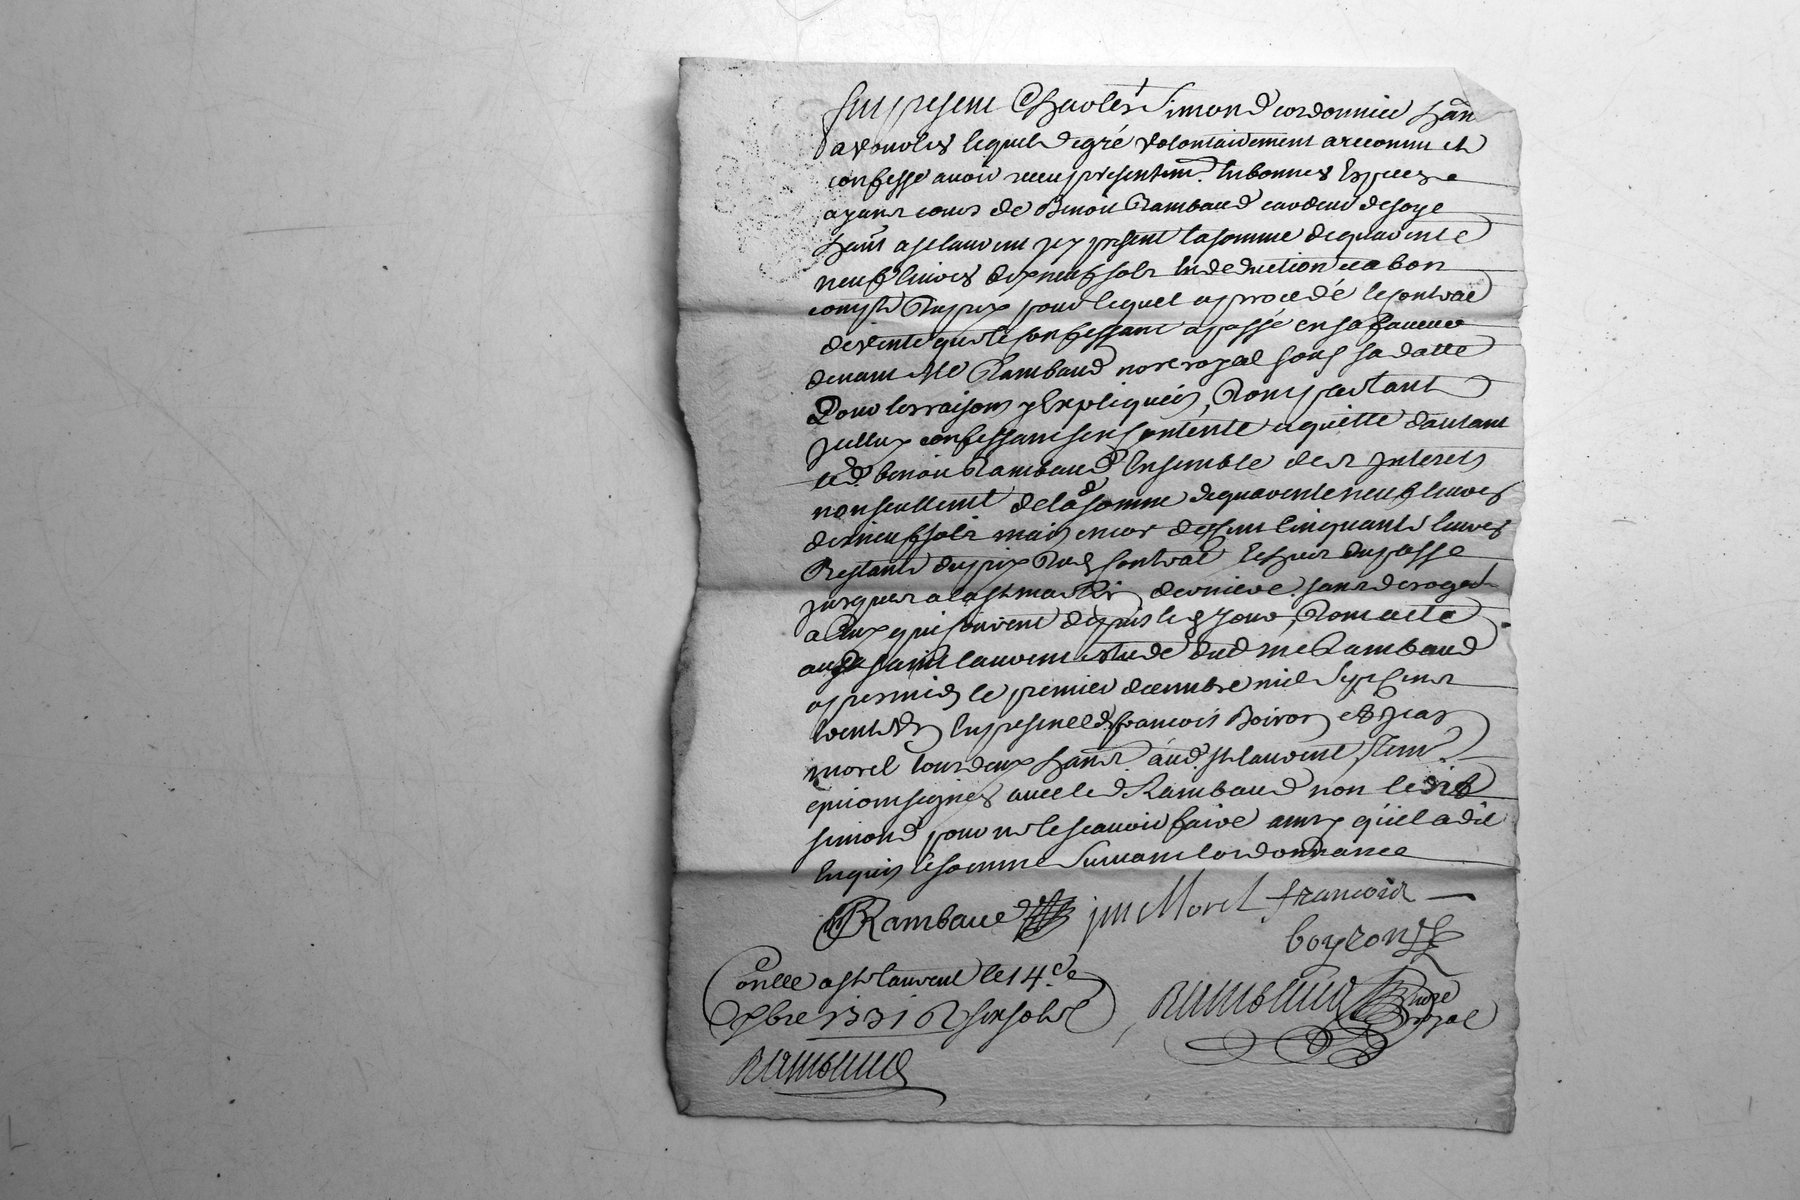 fut present Charles Simond cordonnier han
a vourles lequel de gré volontairement a reconnu et
confesse avoir receu presentemt. en bonnes especes
ayant cours de Benoit Rambaud cardeur de soye
hant a st laurent icy present la somme de quarente
neuf livres dix neuf sols en deduction et a bon
compte du prix pour lequel a procedé le contrat
de vente que le confessant a passé en sa faveur
devant Me Rambaud nore royal sous sa datte
Pour les raisons y expliquées, Dont partant
icelluy confessant sen contente et quitte dautant
led. benoit Rambaud ensemble des interets
non seullemt de lad somme de quarente neuf livres
dix neuf sols mais encor de cent cinquante livres
Restante du prix dud contrat echeus du passé
jusques a la st martin derniere sans deroger
a ceux qui courent depuis led jour, Dont acte
aud saint laurent etude dud me Rambaud
apres midy le premier decembre mil sept cent
trente en presence de francois Boiron et jean
morel tous deux hants aud. st laurent, tem.
qui ont signés avec led Rambaud non ledit
simond pour ne le scavoir faire ainsy qu'il a dit
enquis et sommé suivant lordonnance
Rambaud jm Morel francois
boyron
Conlle a st laurent le 14e
xbre 1731 R six sols
Rambaud nore
royal
Rambaud